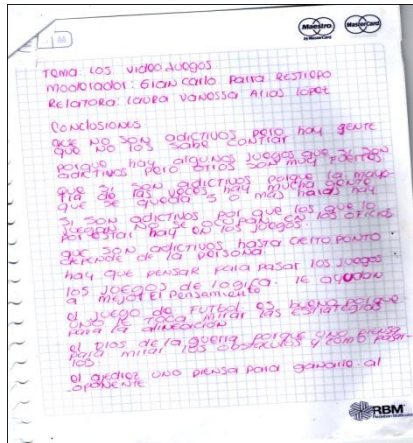 Maestro
MasterCard
Tema: Los videojuegos
moderador: Gian Carlo Parra Restrepo
Relatora: Laura Vanessa Arias Lopez
Conclusiones
que no son adictivos pero hay gente
que no los sabe
porque hay algunos juegos que si son
adictivos pero otros son muy fuertes.
que si son adictivos porque la mayo-
ria de las hay mucha gente
que se queda 5 o más horas hay
si son adictivos por que los que lo
juegan no se ocupan en los oficios
por estar hay en los juegos.
que son adictivos hasta cierto ponto
depende de la persona.
hay que pensar para pasar los juegos
los juegos de logica. le ayudan
a mejor el pensamiento
el juego de futbol es bueno porque
uno le toca mirar las estrategias
para la alineación
el dios de la guerra porque uno piensa
para mirar los obstaculos y como pasar-
los.
el ajedrez uno piensa para ganarle al
oponente
RBM